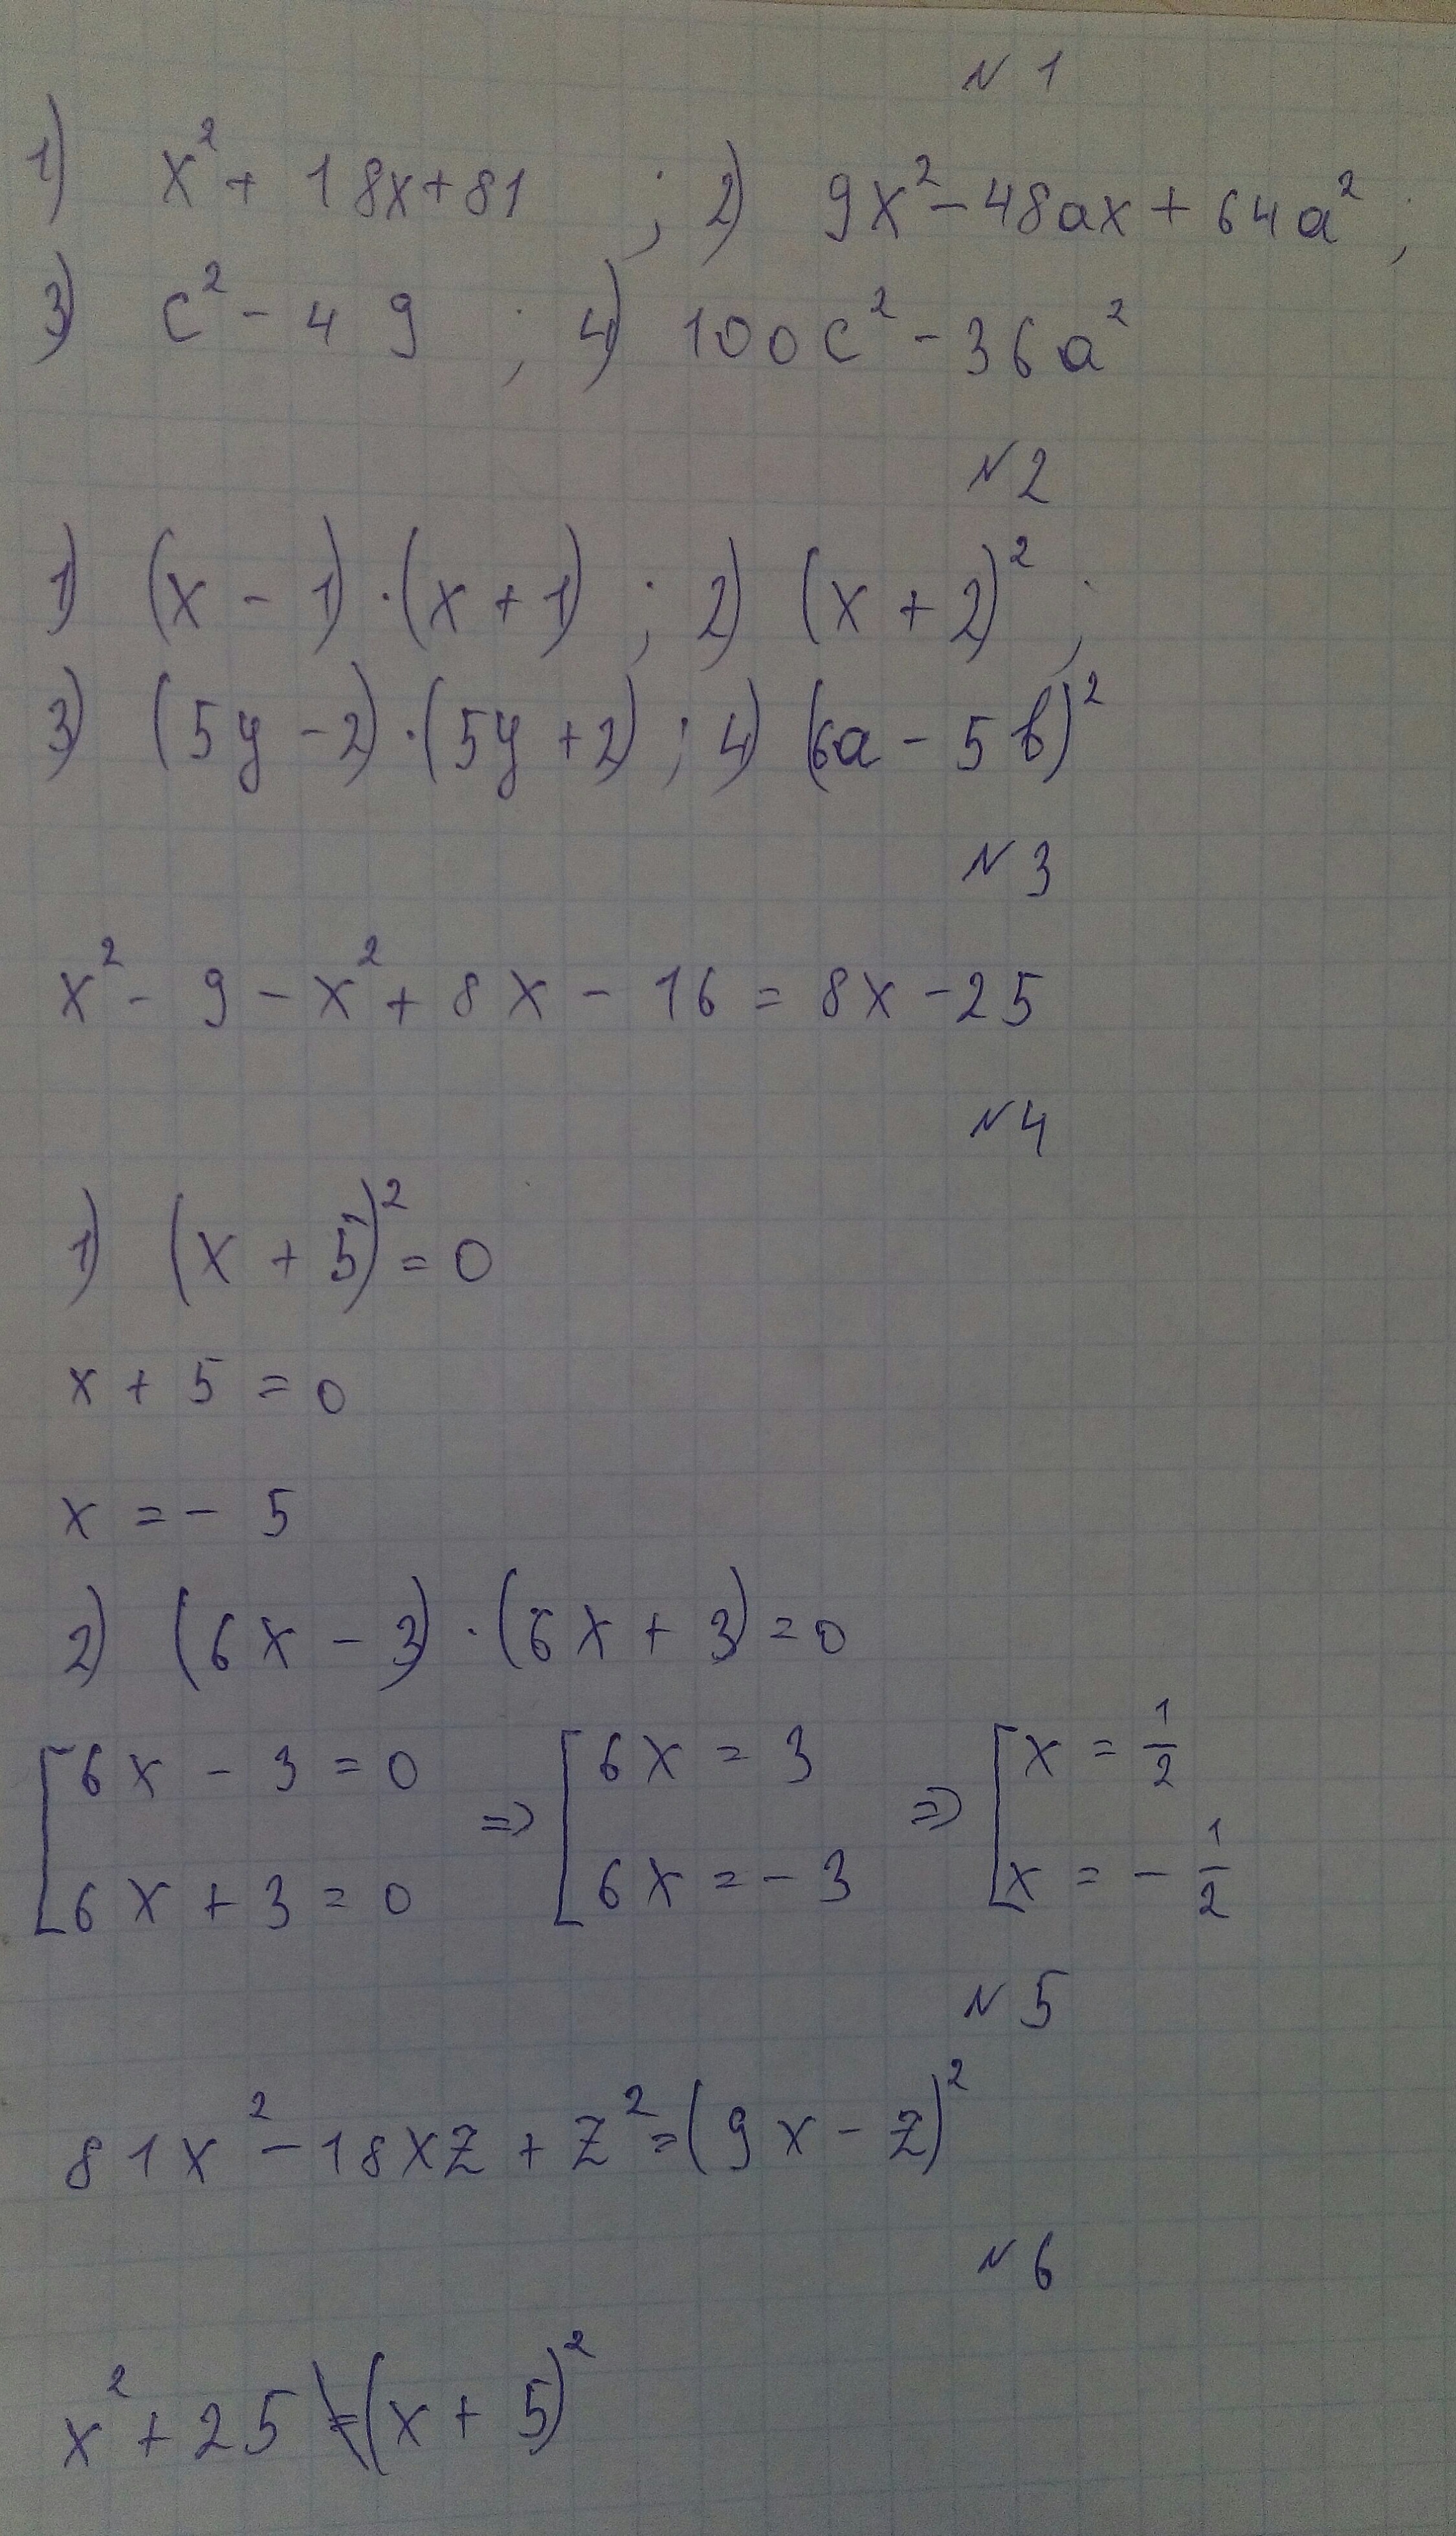 N 1
1) x² + 18x + 81 ; 2) 9x² - 48ax + 64a² ;
3) c² - 49 ; 4) 100c² - 36a²
N 2
1) (x - 1)·(x + 1) ; 2) (x + 2)² ;
3) (5y - 2)·(5y + 2) ; 4) (6a - 5b)²
N 3
x² - 9 - x² + 8x - 16 = 8x - 25
N 4
1) (x + 5)² = 0
x + 5 = 0
x = - 5
2) (6x - 3)·(6x + 3) = 0
[6x - 3 = 0 => [6x = 3 => [x = 1/2
[6x + 3 = 0 [6x = - 3 [x = - 1/2
N 5
81x² - 18xz + z² = (9x - z)²
N 6
x² + 25 ≠ (x + 5)²